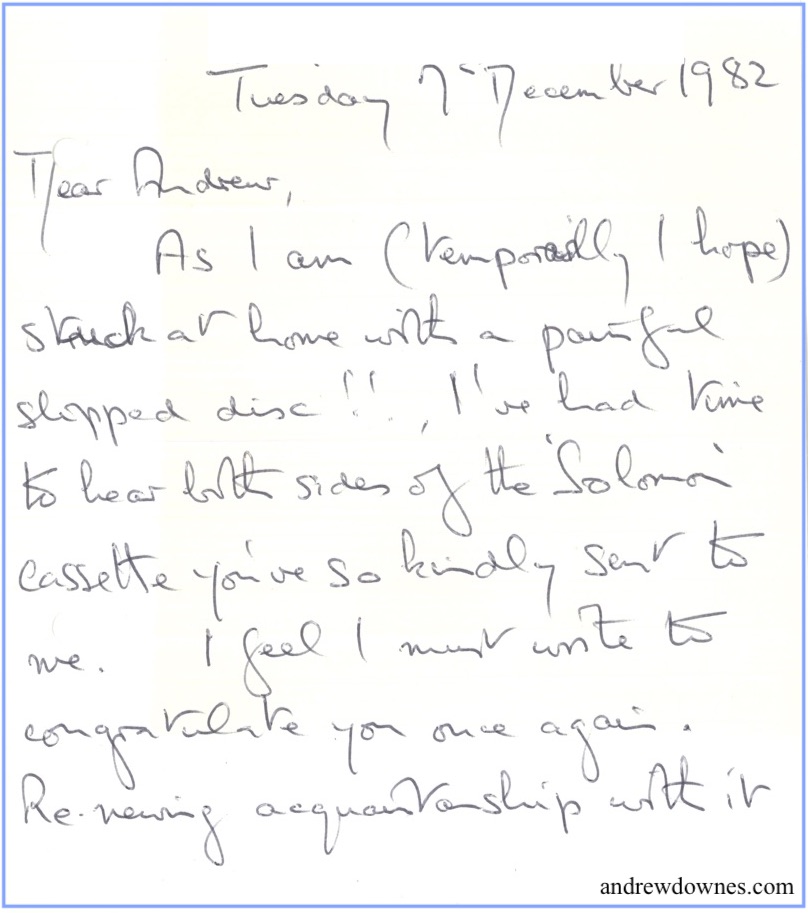 Tuesday 7th December 1982
Dear Andrew,
As I am (temporarily I hope)
stuck at home with a painful
slipped disc!!, I've had time
to hear both sides of the 'Solomon'
cassette you've so kindly sent to
me. I feel I must write to
congratulate you once again.
Re-newing acquaintanship with it
andrewdownes.com